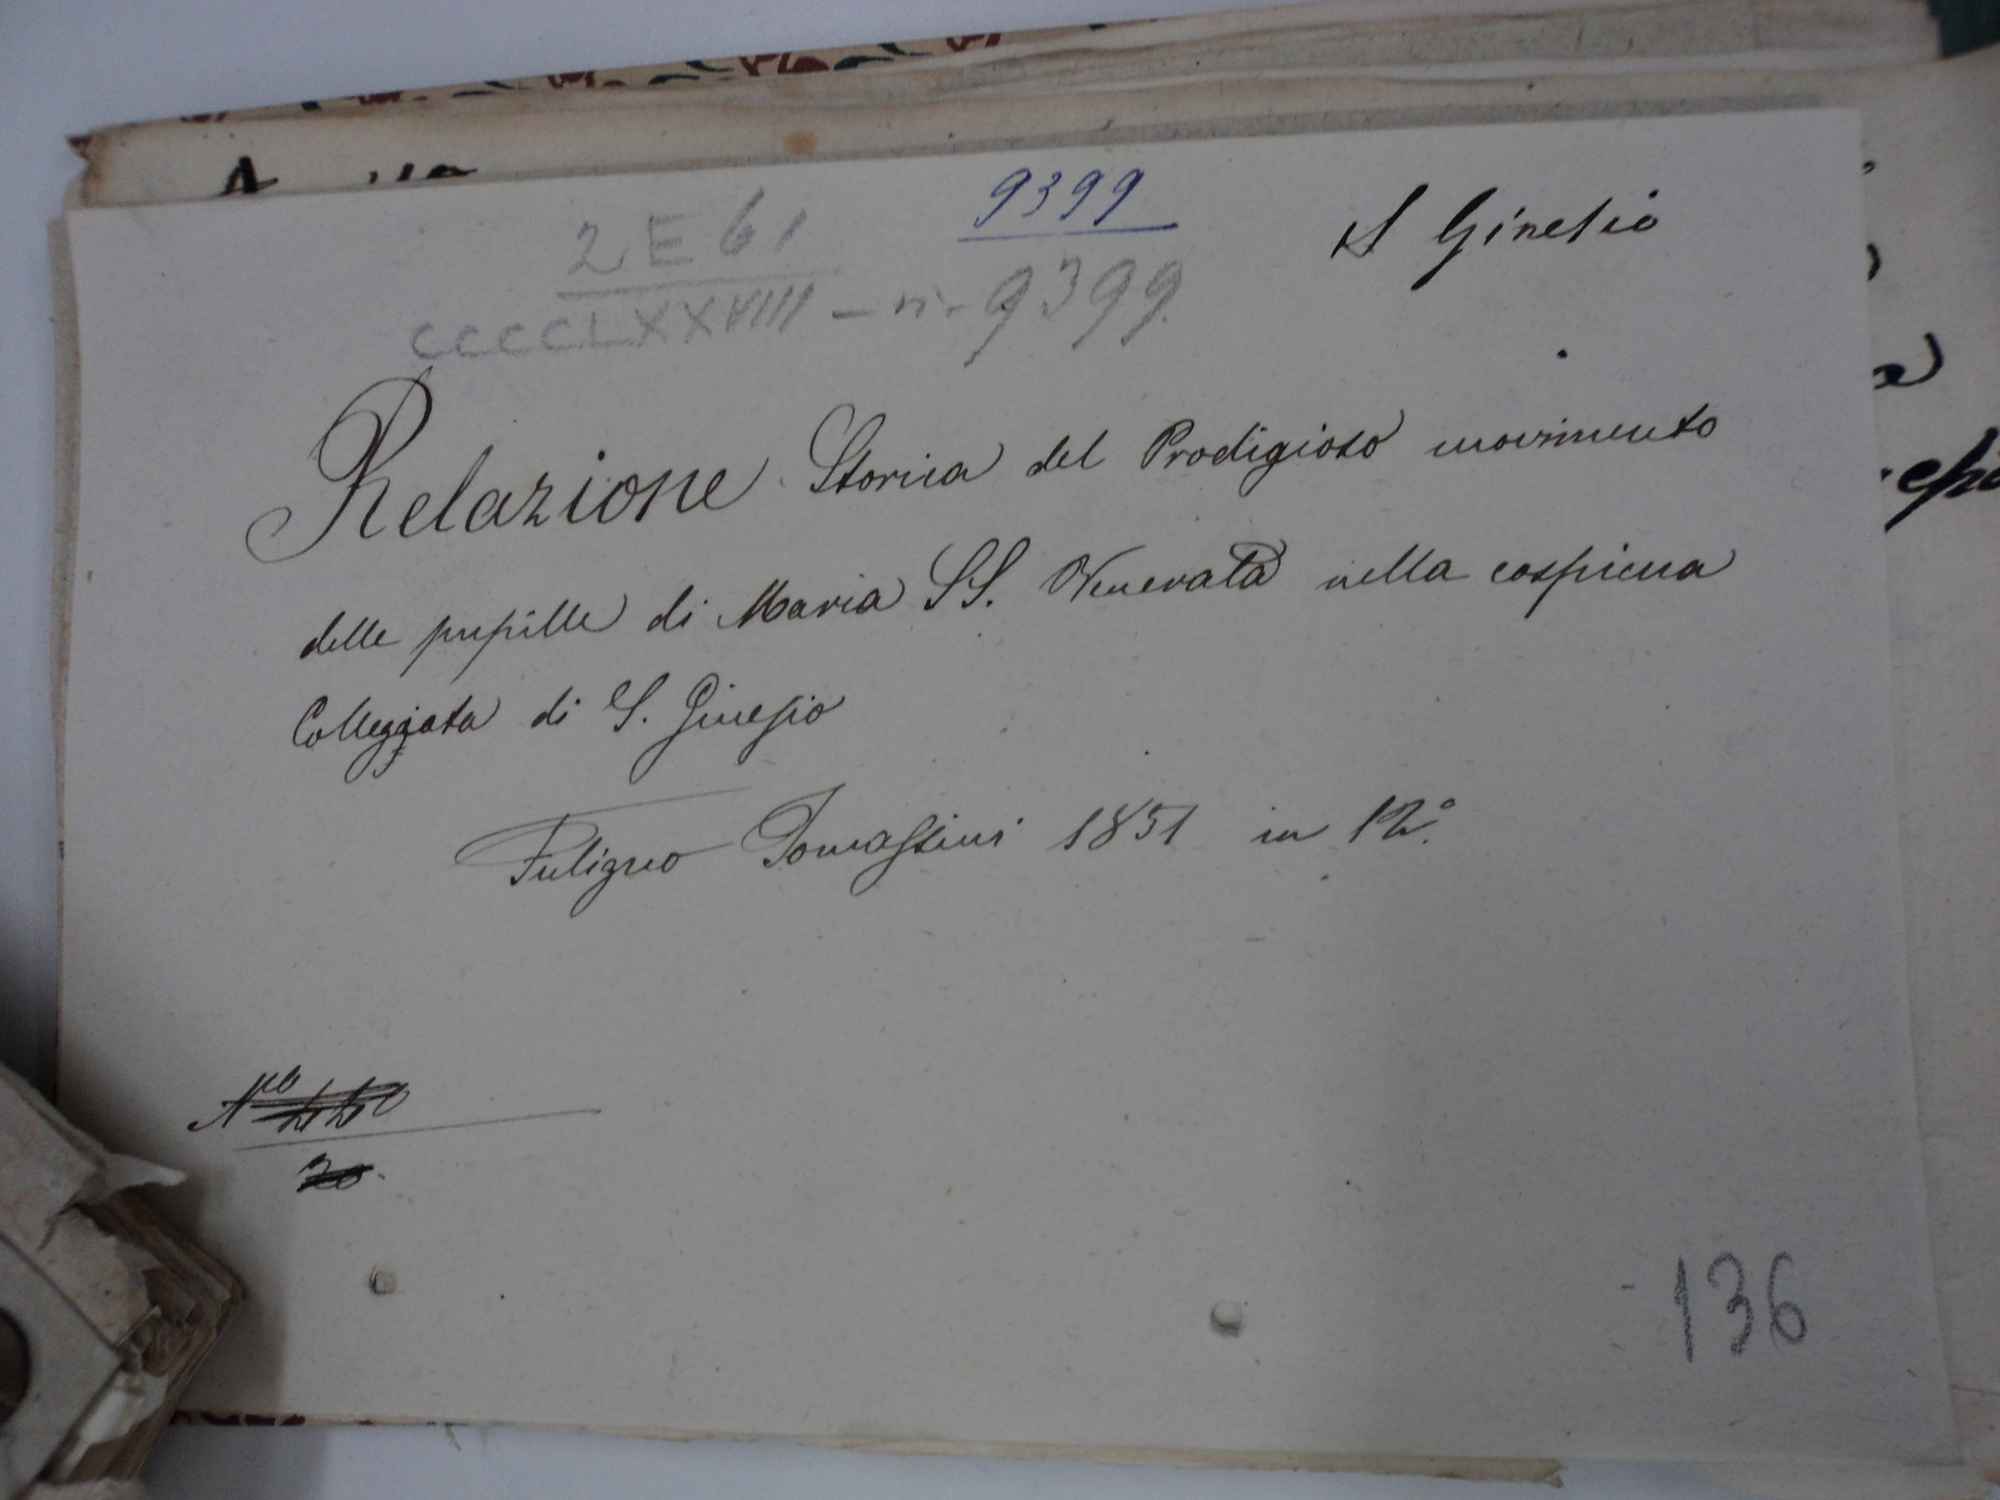 9399
S Ginesio
2 E 61
CCCCLXXVIII - n. 9399.
Relazione Storica del Prodigioso movimento
delle pupille di Maria SS. Venerata nella cospicua
Colleggiata di S. Ginesio
Fuligno Tomassini 1851 in 12.°
20.
136